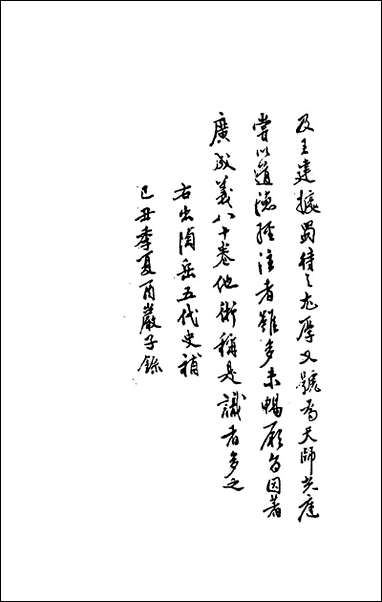 及王建據蜀待之尤厚又號為天師光庭
嘗以道德經注者雖多未暢厥旨因著
廣成義八十卷他術稱是識者多之
右出陶岳五代史補
己丑季夏丙嚴子錄